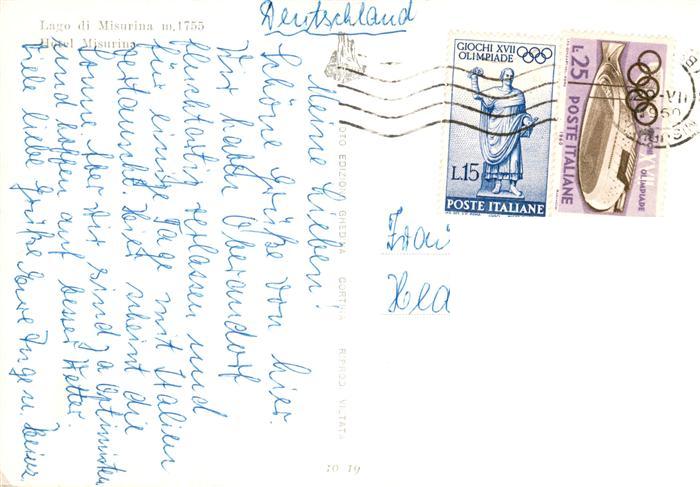 Lago di Misurina m. 1755
Hotel Misurina
Deutschland
Meine Lieben!
Schöne Grüße von hier.
Wir haben Oberaudorf
verlassen und
für einige Tage mit Italien
getauscht. Hier scheint die
Sonne. Aber wir sind ja Optimisten
und hoffen auf besser Wetter.
Viele liebe Grüße Eure Inge u. Heinz
FOTO EDIZIONI GHEDINA CORTINA RIPROD. VIETATA
GIOCHI XVII
OLIMPIADE
L.15
POSTE ITALIANE
L.25
POSTE ITALIANE
OLIMPIADE
Frau
Hea
10 19